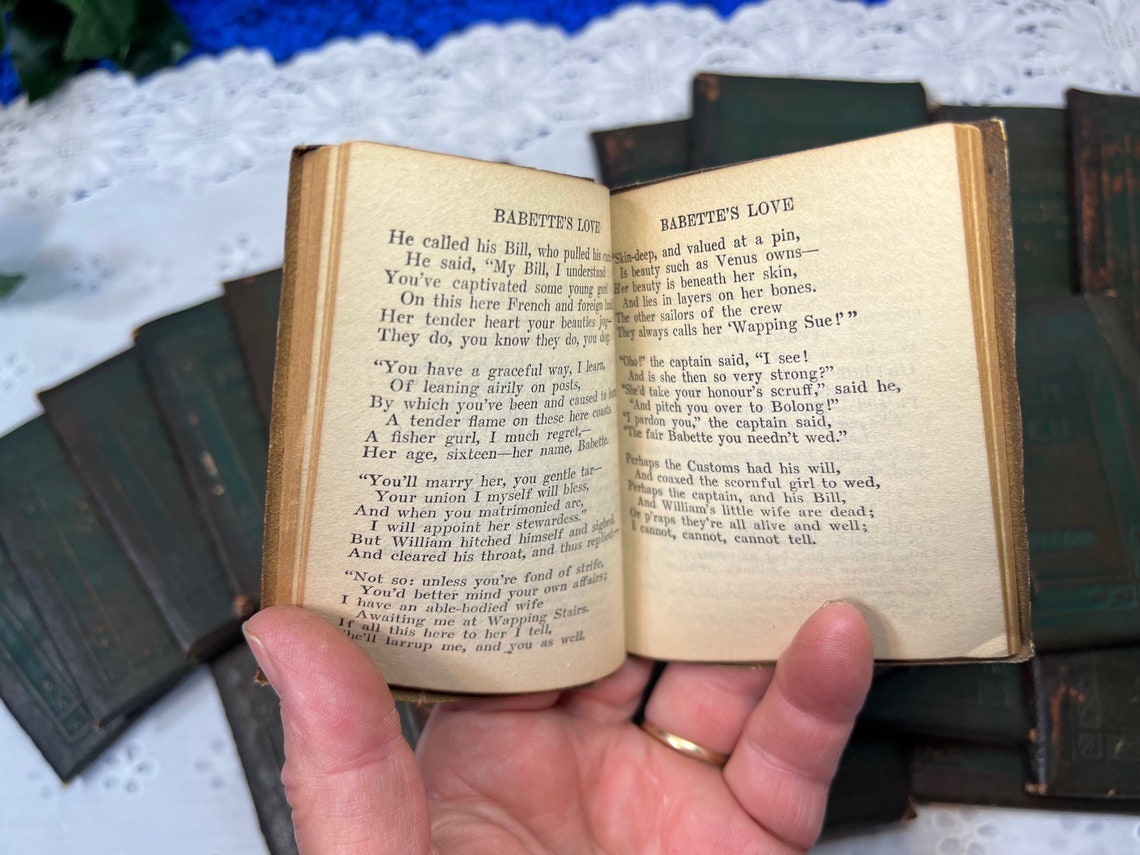 BABETTE'S LOVE
He called his Bill, who pulled his
He said, "My Bill, I understand
You've captivated some young
On this here French and foreign
Her tender heart your beauties jog—
They do, you know they do, you dog.
"You have a graceful way, I learn,
Of leaning airily on posts,
By which you've been and caused to burn
A tender flame on these here coasts.
A fisher gurl, I much regret,—
Her age, sixteen—her name, Babette.
"You'll marry her, you gentle tar—
Your union I myself will bless,
And when you matrimonied are,
I will appoint her stewardess."
But William hitched himself and sighed,
And cleared his throat, and thus replied—
"Not so: unless you're fond of strife,
You'd better mind your own affairs;
I have an able-bodied wife
Awaiting me at Wapping Stairs.
If all this here to her I tell,
She'll larrup me, and you as well.
BABETTE'S LOVE
"Skin-deep, and valued at a pin,
Is beauty such as Venus owns—
Her beauty is beneath her skin,
And lies in layers on her bones.
The other sailors of the crew
They always calls her 'Wapping Sue!'"
"Oho!" the captain said, "I see!
And is she then so very strong?"
"She'd take your honour's scruff," said he,
"And pitch you over to Bolong!"
"I pardon you," the captain said,
"The fair Babette you needn't wed."
Perhaps the Customs had his will,
And coaxed the scornful girl to wed,
Perhaps the captain, and his Bill,
And William's little wife are dead;
Or p'raps they're all alive and well;
I cannot, cannot, cannot tell.